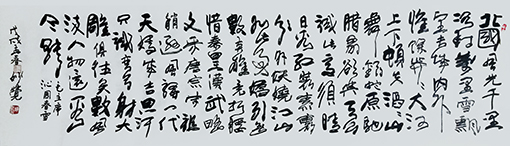 北國風光千里
冰封萬里雪飄
望長城內外
惟餘莽莽大河
上下頓失滔滔山
舞銀蛇原馳
蠟象欲與天公
試比高須晴
日看紅裝素裹
分外妖嬈江山
如此多嬌引無
數英雄競折腰
惜秦皇漢武略輸
文采唐宗宋祖
稍遜風騷一代
天驕成吉思汗
只識彎弓射大
雕俱往矣數風
流人物還看
今朝
毛主席
沁園春雪
戊戌